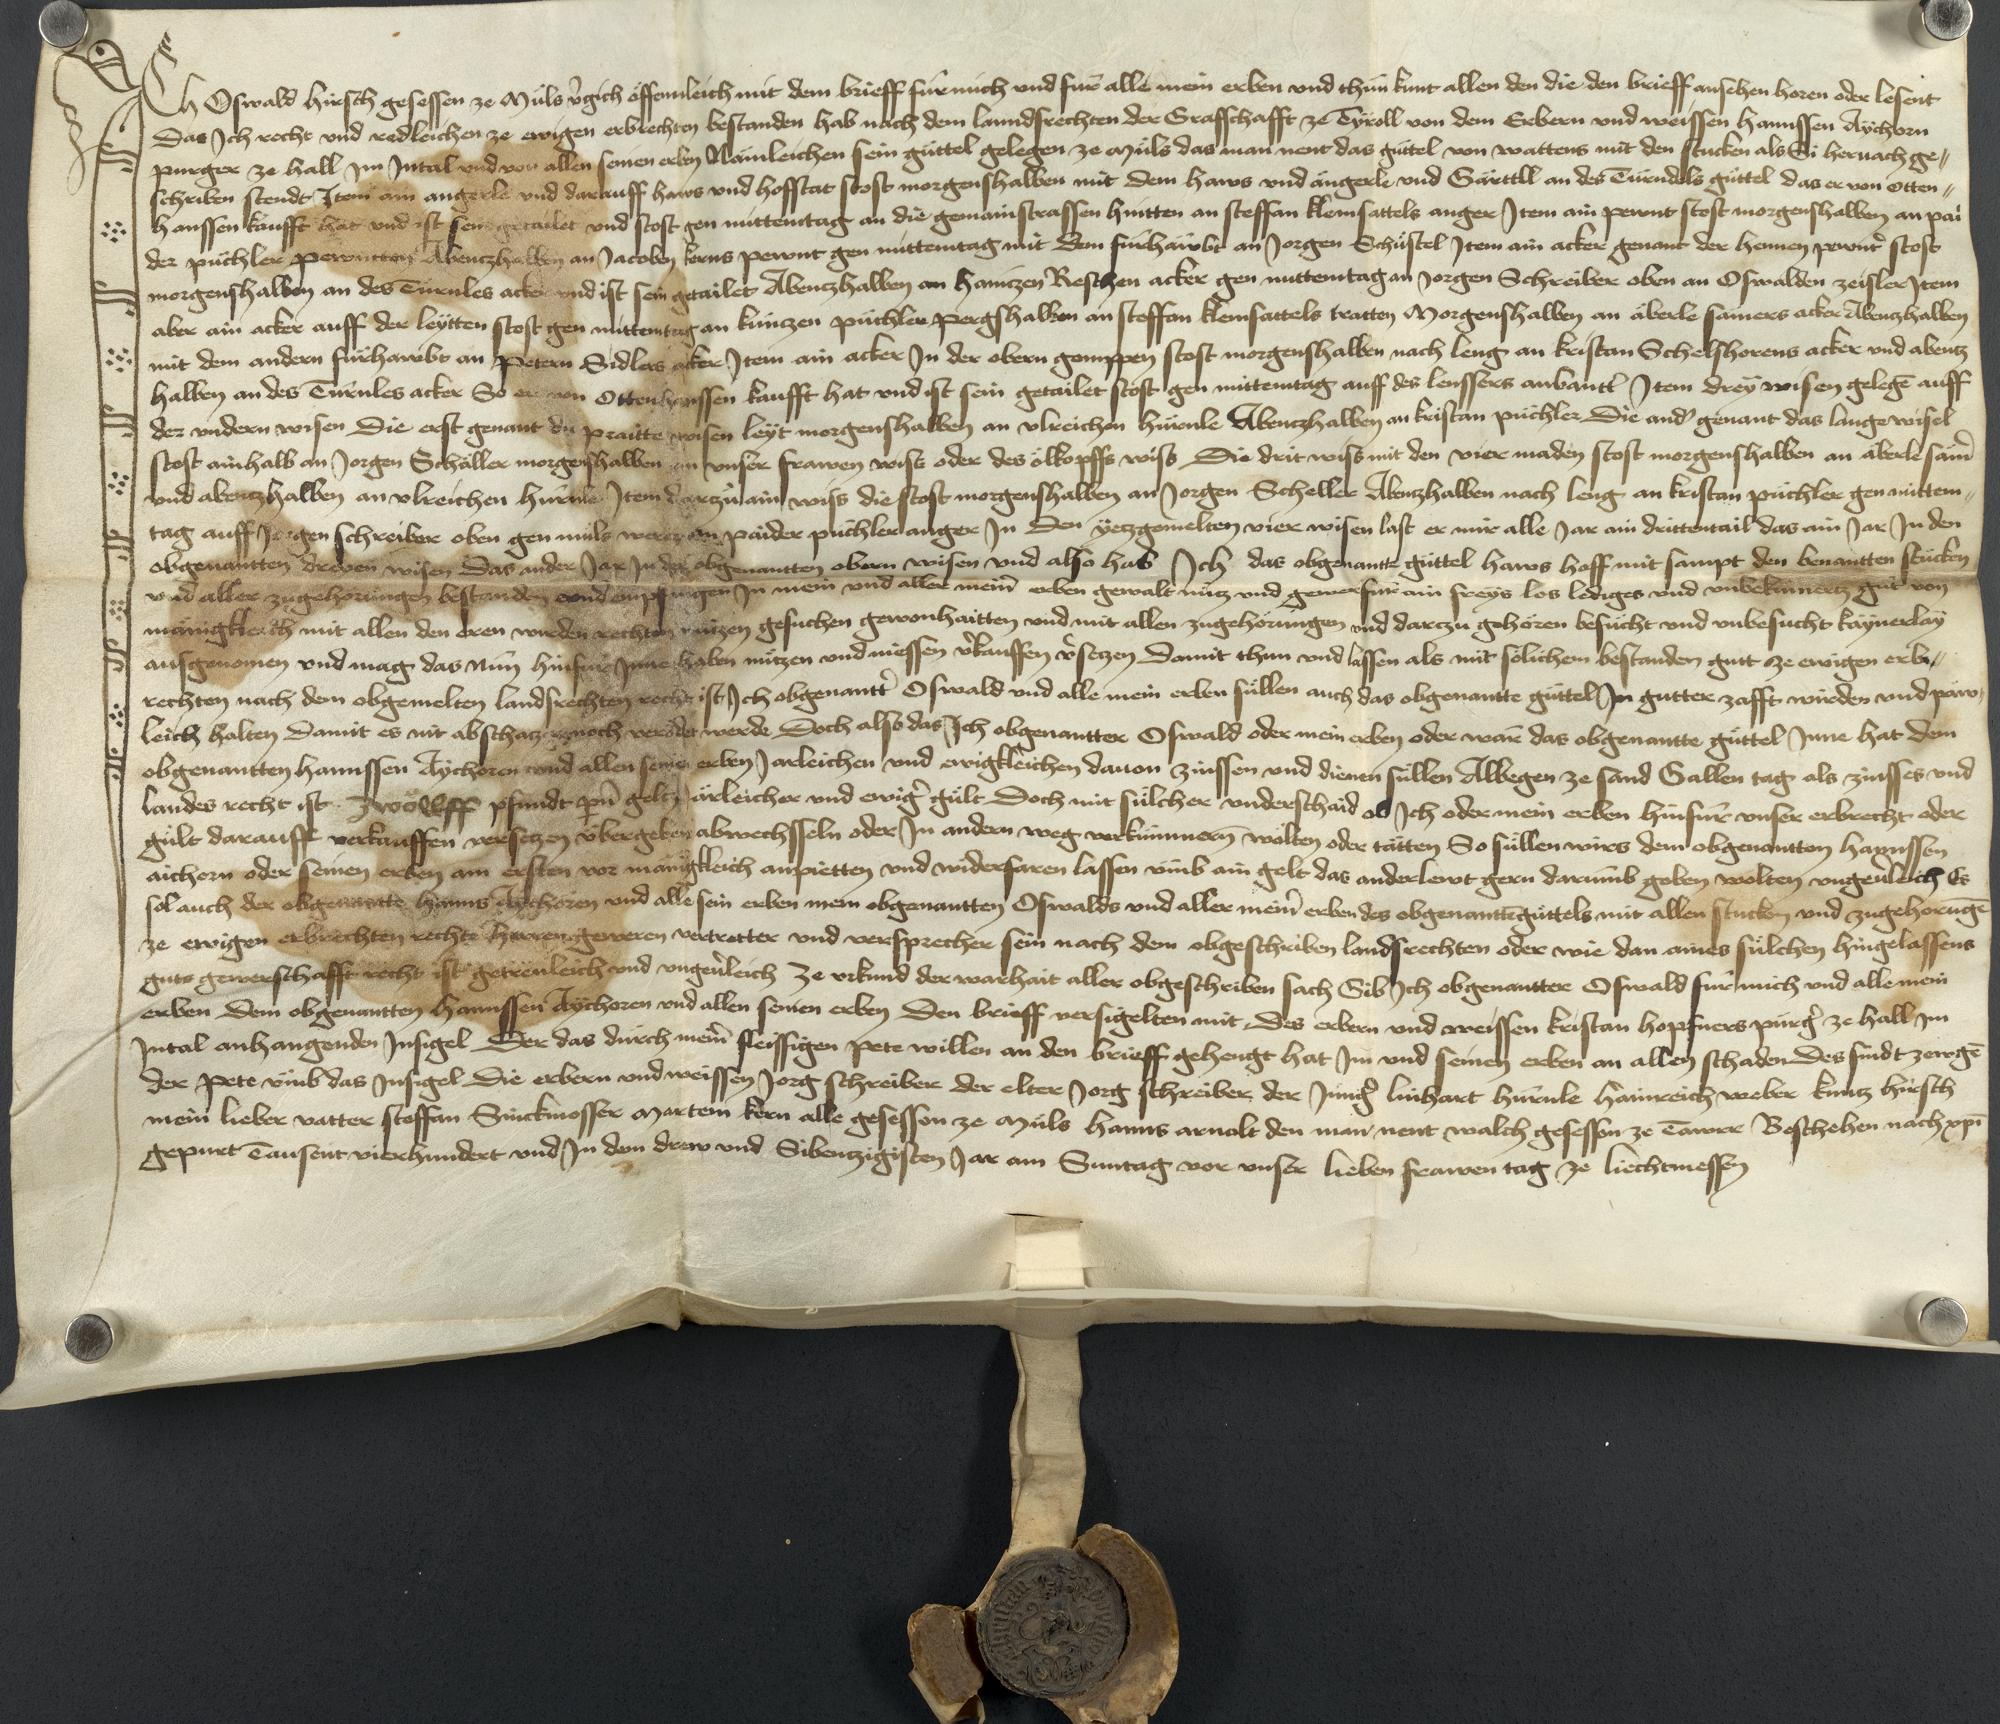 Ich Oswald hirsch gesessen ze Müls vgich offennleich mit dem brieff für mich vnd für alle mein erben vnd thun kunt allen den die den brieff ansehen horen oder lesent
Das Ich recht vnd redleichen ze ewigen erbrechten bestanden hab nach dem lanndsrechten der Grafschafft ze Tyroll von dem Erbern vnd weissen hannssen Aychorn
purger ze hall Im Intal vnd von allen seinen erben Nämleichen sein güttel gelegen ze müls das man nent das güttel von wattens mit den stucken als Si hernach ge=
schriben stendt Item ain angerle vnd darauff haws vnd hoffstat stost morgenshalben mit dem haws vnd ängerle vnd Gärttll an des Türndels güttel das er von otten=
hanssen kaufft hat vnd ist sein getailet vnd stost gen mittemtag an die gemainstrassen hintten an steffan klemsattels anger Item ain pewnt stost morgenshalben an pai
der püchler pewntten Abentzhalben an Jacoben kerns pewnt gen mittemtag mit dem fürhäwbt an Jorgen Schüstel Item ain acker genant der hennen pewntt stost
morgenshalben an des Türnles acker vnd ist sein getailet Abentzhalben an haintzen Reschen acker gen mittemtag an Jorgen Schreiber oben an Oswalden zeisler Item
aber ain acker auff der leytten stost gen mittemtag an kuntzen püchler pergshalben an steffan klemsattels tratten Morgenshalben an äberle sämers acker Abentzhalben
mit dem andern fürhawbt an Petern Sidlers acker Item ain acker In der obern gomppen stost morgenshalben nach leng an kristan Schelshorens acker vnd abentz
halben an des Türnles acker So er von Ottenhanssen kaufft hat vnd ist sein getailet stost gen mittemtag auff des lenssers anbantt Item drey wisen gelegē auff
der vndern wisen Die erst genant die praitte wisen leyt morgenshalben an vlreichen hürnle Abentzhalben an kristan püchler Die and genant das lange wisel
stost ainhalb an Jorgen Schäller morgenshalben an vnser frawen wiss oder des ölkopffs wiss Die drit wiss mit den vier maden stost morgenshalben an äberle säm
vnd abentzhalben an vlreichen hürnle Item darzu ain wiss die stost morgenshalben an Jorgen Scheller Abentzhalben nach leng an kristan püchler gen mittem=
tag auff Jorgen schreiber oben gen müls an paider püchler anger In den yetzgemelten vier wisen last er mir alle Jar ain drittentail das ain Jar In den
obgenantten dreyen wisen Das ander Jar In der obgenantten obern wisen vnd also hab Ich das obgenantte güttel haws hoff mit sampt den benantten stücken
vnd aller zugehorungen bestanden vnd empfangen In mein vnd aller mein erben gewalt nütz vnd gewer für ain freys los lediges vnd vnbekümertz güt von
mänigkleich mit allen den eren wirden rechten nützen gesuchen gewonhaitten vnd mit allen zugehörungen vnd darczu gehoren besücht vnd vnbesucht kaynerlay
ausgenomen vnd mag das Nün hinfür Inne haben nützen vnd niessen vkauffen vsetzen Damit thun vnd lassen als mit sölichem bestanden gutt ze ewigen erb=
rechten nach dem obgemelten landsrechten recht ist Ich obgenantt Oswald vnd alle mein erben süllen auch das obgenantte güttel In gutter zafft wirden vnd päw=
leich halten Damit es nit abschatz noch verödet werde Doch also das Ich obgenantter Oswald oder mein erben oder wär das obgenantte güttel Inne hat dem
obgenantten hannssen Aychoren vnd allen seinen erben Jarleichen vnd ewigkleichen dauon zinssen vnd dienen süllen Albegen ze sand Gallen tag als zinsses vnd
landes recht ist Zwölff pfundt pn geltz Järleicher vnd ewig gült Doch mit sülcher vnderschaid ob Ich oder mein erben hinfür vnser erbrecht oder
gült darauff verkauffen versetzen übergeben abwechsseln oder In andern weg verkümmern wolten oder tätten So süllen wirs dem obgenantten hannssen
aichorn oder seinen erben am ersten vor mänigkleich anpietten vnd widerfaren lassen vmb ain gelt das ander lewt gern darumb geben wolten vngeuleich Es
sol auch der obgenantte hanns Aychoren vnd alle sein erben mein obgenantten Oswalds vnd aller mein erben des obgenantē güttels mit allen stucken vnd zugehorungē
ze ewigen erbrechten rechte herren geweren vertretter vnd versprecher sein nach dem obgeschriben landsrechten oder wie dan aines sülchen hingelassens
guts gewerschafft recht ist getreuleich vnd vngeuleich Ze vrkund der warhait aller obgeschriben sach Gib Ich obgenantter Oswald für mich vnd alle mein
erben Dem obgenantten hannssen Aychoren vnd allen seinen erben Den brieff versigelten mit des erbern vnd weissen kristan hopfners purg ze hall Im
Intal anhangenden Insigel Der das durch mein fleissigen pete willen an den brieff gehengt hat Im vnd seinen erben an allen schaden Des sindt zewgē
der pete vmb das Insigel Die erbern vnd weissen Jorg schreiber der elter Jorg schreiber der Jüng linhart hürnle hainreich weber kuntz hirsch
mein lieber vatter steffan Sinckmosser Martein kern alle gesessen ze Müls hanns arnolt den man nent walch gesessen ze Tawrr Beschehen nach xpi
gepurt Tausent vierhundert vnd In dem drew vnd Sibentzigisten Jar am Suntag vor vnser lieben frawen tag ze liechtmessen